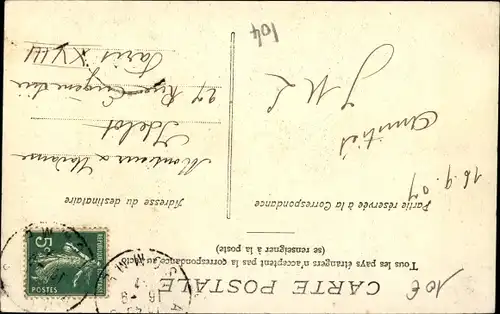 CARTE POSTALE
Tous les pays étrangers n'acceptent pas la correspondance au recto
(se renseigner à la poste)
Partie réservée à la Correspondance
Adresse du destinataire
16.9.07
Amitiés
J M L
Monsieur & Madame
27 Rue Eugène Süe
Paris
XVIII
104
10€
5c
POSTES